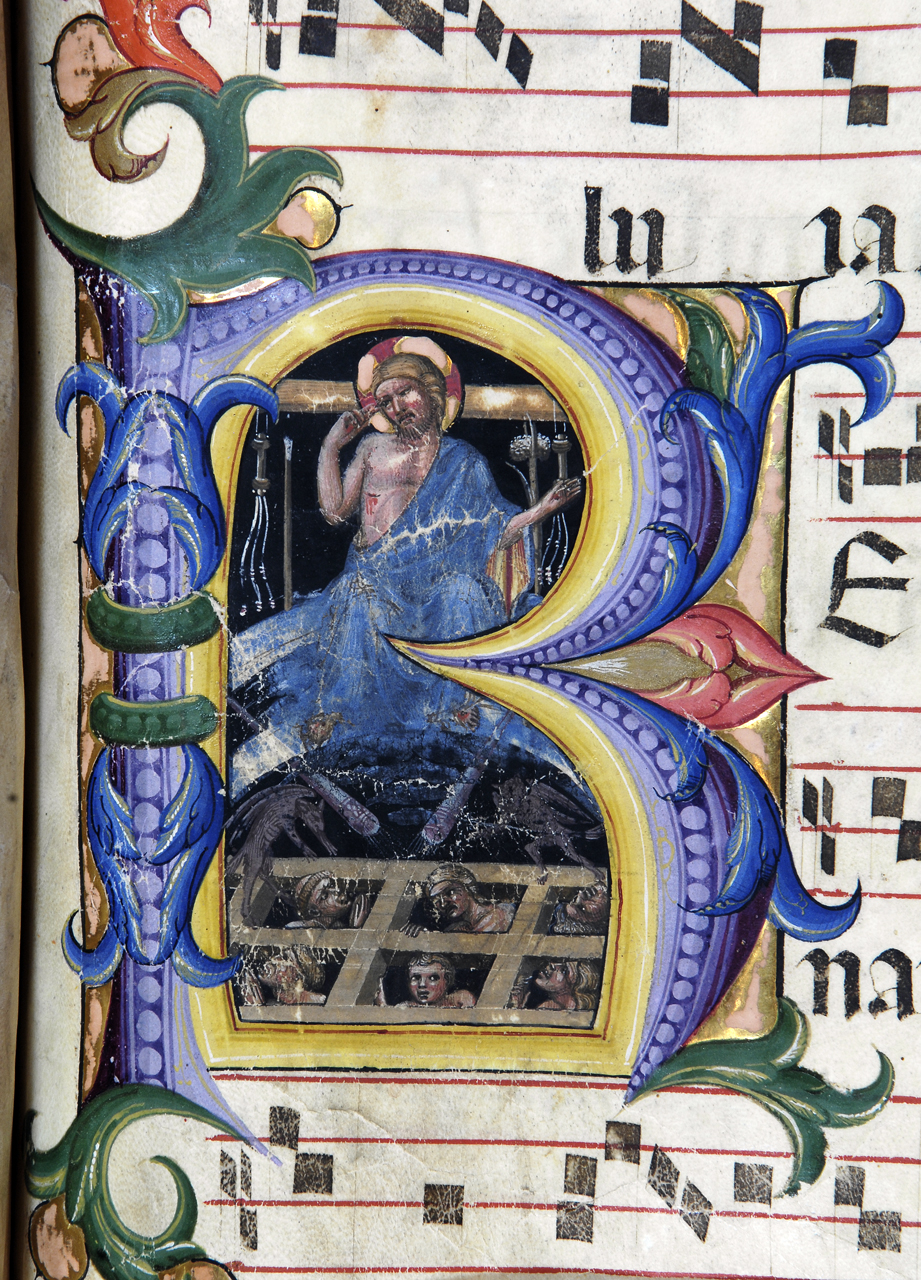 lu ia
R E
na